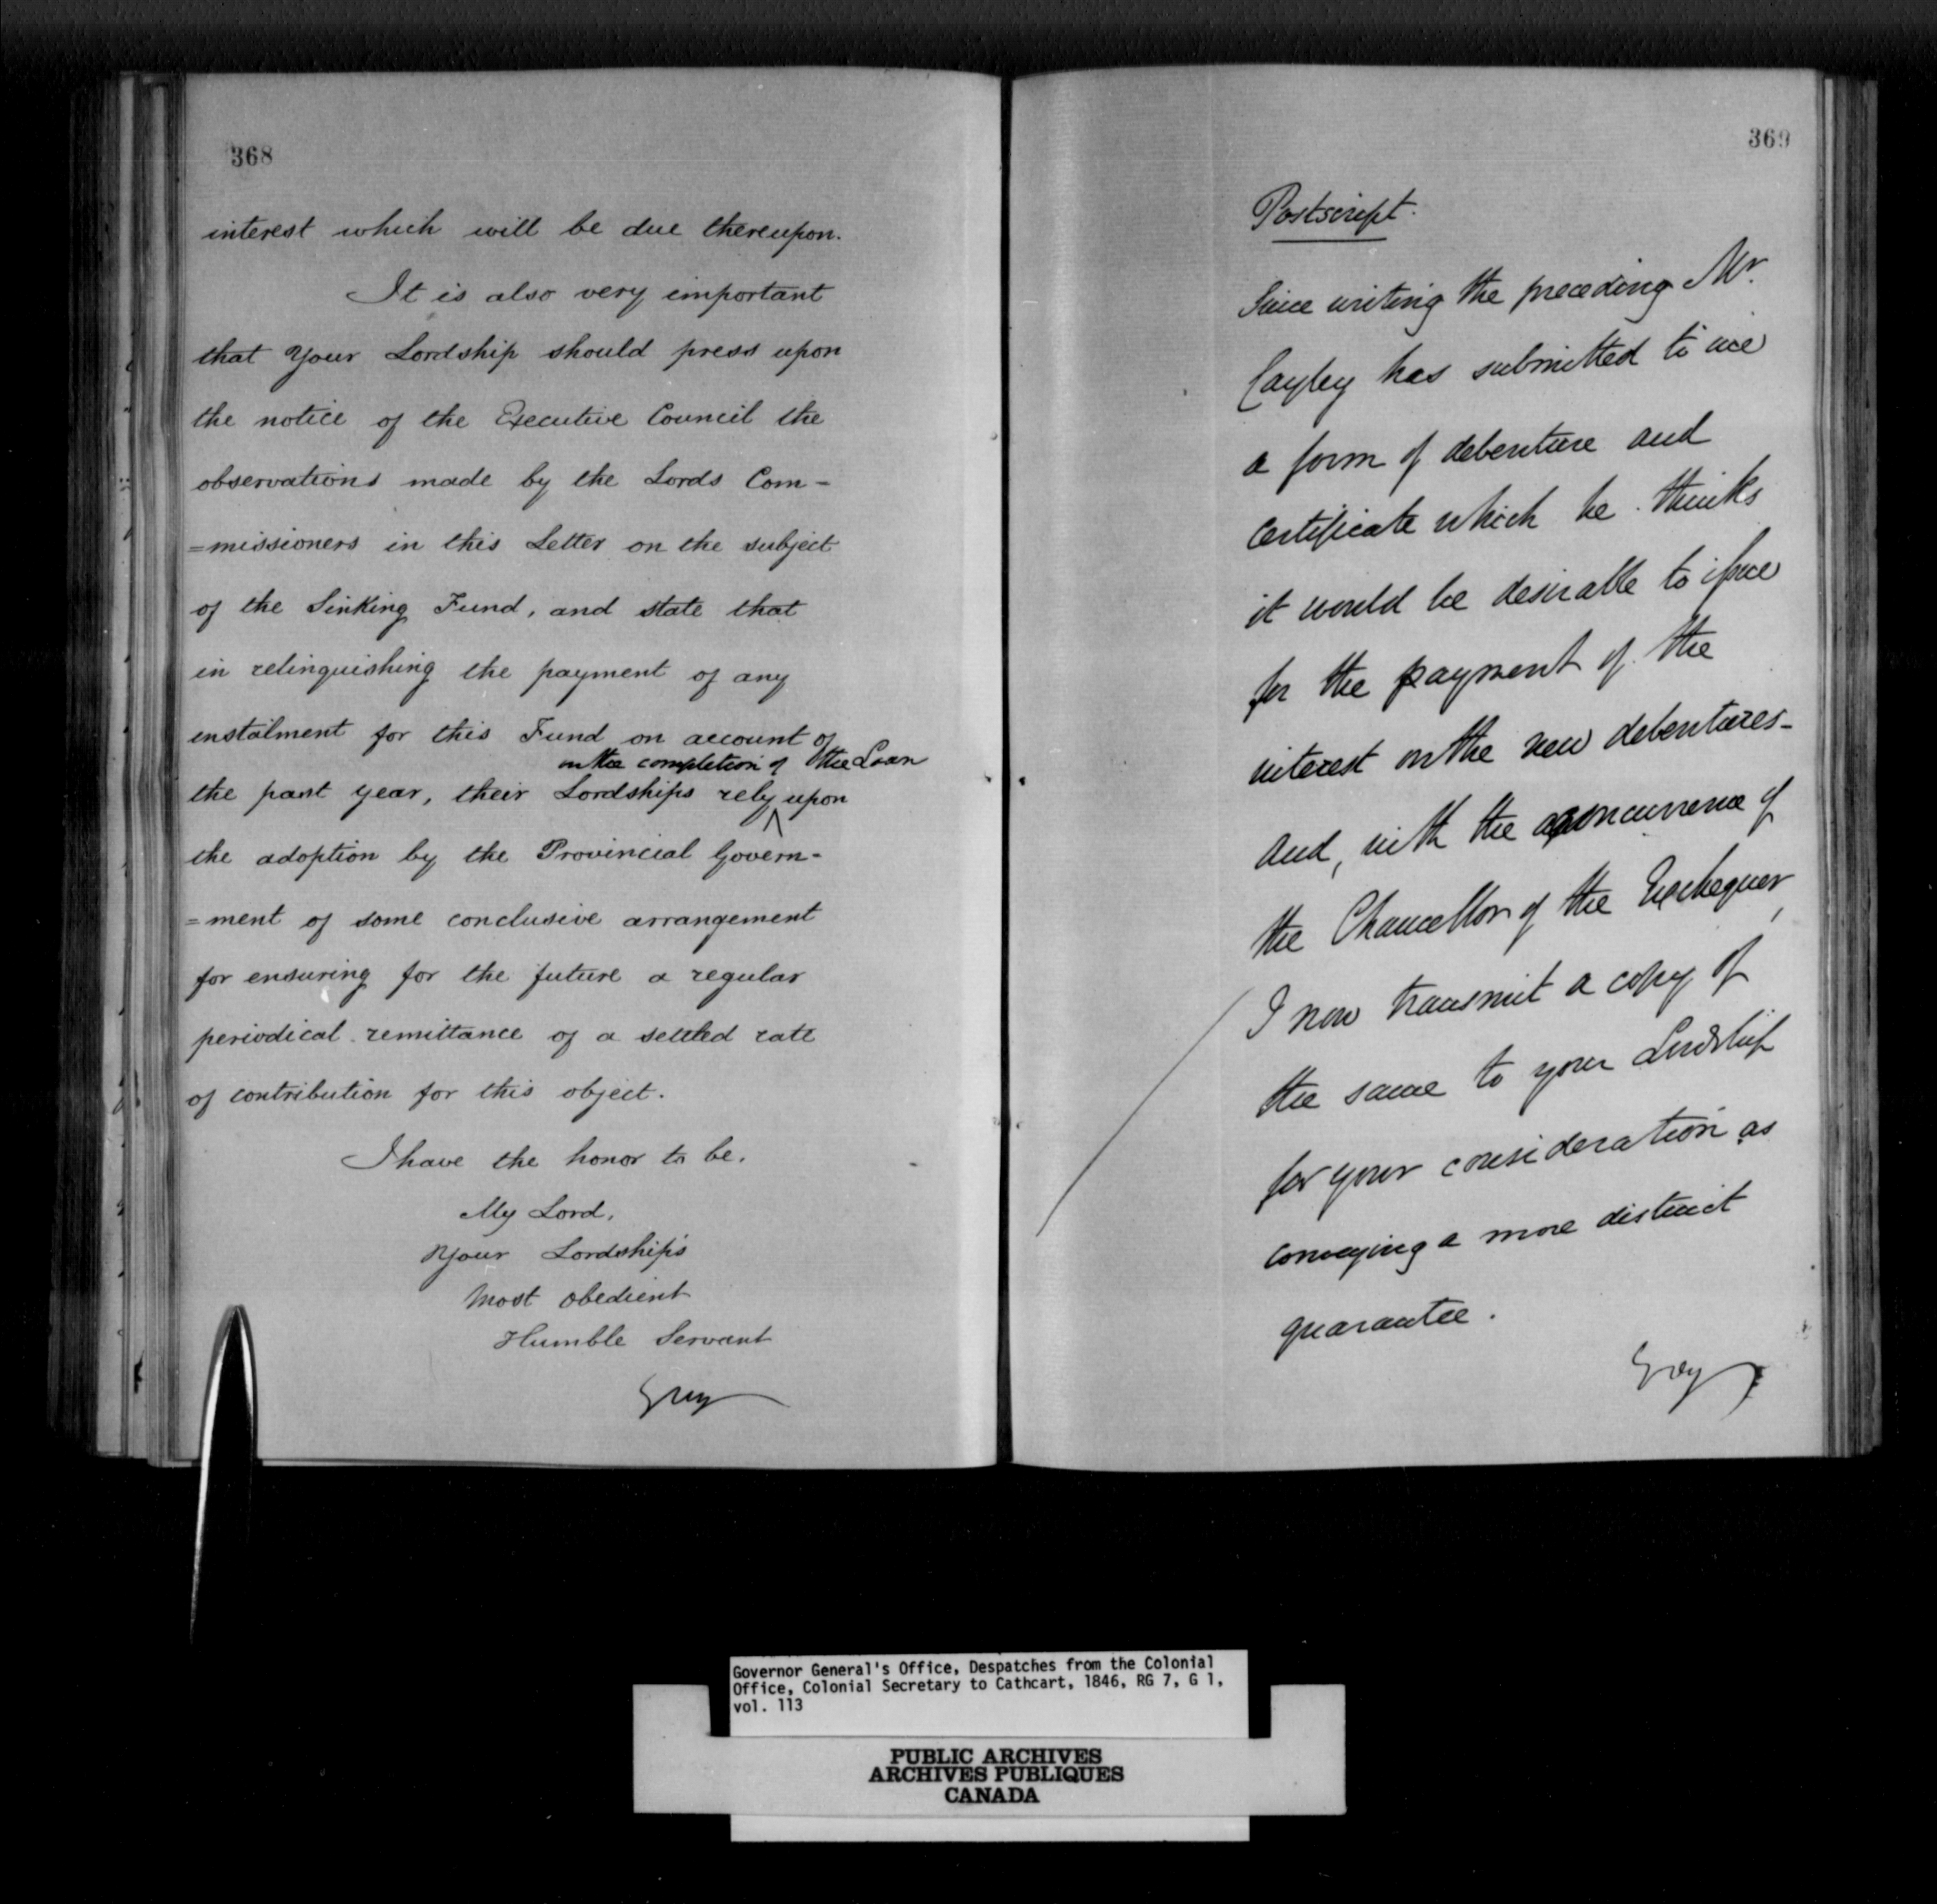 368
interest which will be due thereupon.
It is also very important
that Your Lordship should press upon
the notice of the Executive Council the
observations made by the Lords Com-
=missioners in this Letter on the subject
of the Sinking Fund, and state that
in relinquishing the payment of any
instalment for this Fund on account of
on the completion of the Loan
the past year, their Lordships rely upon
the adoption by the Provincial Govern-
=ment of some conclusive arrangement
for ensuring for the future a regular
periodical remittance of a settled rate
of contribution for this object.
I have the honor to be,
My Lord,
Your Lordship's
Most obedient
Humble Servant
Grey
369
Postscript.
Since writing the preceding Mr.
Cayley has submitted to me
a form of debenture and
certificate which he thinks
it would be desirable to issue
for the payment of the
interest on the new debentures-
and, with the concurrence of
the Chancellor of the Exchequer,
I now transmit a copy of
the same to your Lordship
for your consideration as
conveying a more distinct
guarantee.
Grey
Governor General's Office, Despatches from the Colonial
Office, Colonial Secretary to Cathcart, 1846, RG 7, G 1,
vol. 113
PUBLIC ARCHIVES
ARCHIVES PUBLIQUES
CANADA